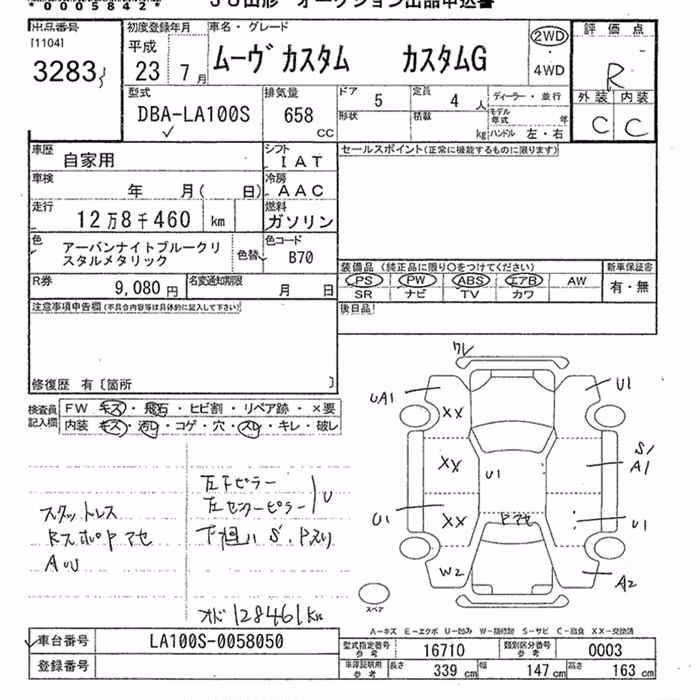 *00058842*
JU山形 オークション出品申込書
出品番号
[1104]
3283
初度登録年月
平成
23 7月
車名・グレード
ムーヴカスタム カスタムG
2WD
4WD
評価点
R
外装 内装
C C
型式
DBA-LA100S
排気量
658
cc
ドア
5
定員
4人
ディーラー・並行
形状
積載
kg
モデル年式
年
ハンドル 左・右
車歴
自家用
シフト
IAT
セールスポイント(正常に機能するものに限ります)
車検
年 月( 日)
冷房
AAC
走行
12万8千460 km
燃料
ガソリン
色
アーバンナイトブルークリスタルメタリック
色替
色コード
B70
R券
9,080円
名変通知期限
月 日
装備品 (純正品に限り○をつけてください)
PS PW ABS エアB AW
SR ナビ TV カワ
新車保証書
有・無
注意事項申告欄(不具合内容等は具体的に記入して下さい)
後日品
修復歴 有〔箇所 〕
検査員記入欄
FW キズ・飛石・ヒビ割・リペア跡・×要
内装 キズ・汚レ・コゲ・穴・スレ・キレ・破レ
ワレ
UA1
U1
XX
XX
S/
A1
U1
U1
XX
Pアセ
U1
W2
A2
スペア
スタットレス
Rスポ Pアセ
AW
左Fピラー
左センターピラー
U
下廻り S・Pスリ
オド128461km
A-キズ E-エクボ U-凹み W-補修跡 S-サビ C-腐食 XX-交換済
車台番号
LA100S-0058050
登録番号
型式指定番号
参考
16710
類別区分番号
参考
0003
車庫証明用
参考
長さ 339cm 幅 147cm 高さ 163cm